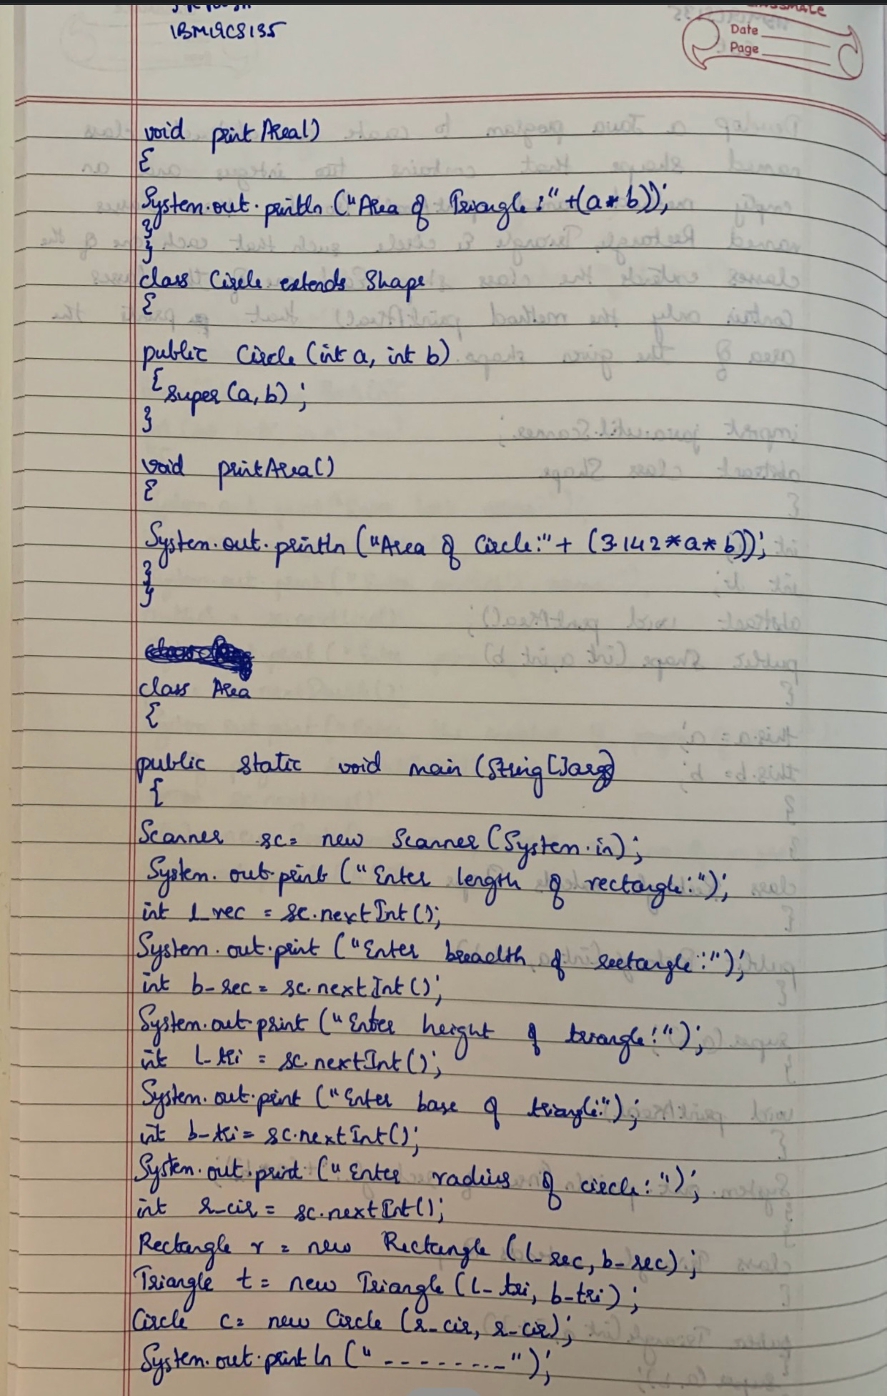 1BM19CS135
CLASSMATE
Date
Page
void printArea()
{
System.out.println ("Area of Triangle :" +(a* b));
}
}
class Circle extends Shape
{
public Circle (int a, int b)
{ super (a, b) ;
}
void printArea()
{
System.out.println ("Area of Circle:" + (3.142*a* b));
}
}
class Area
{
public static void main (String []args)
{
Scanner sc= new Scanner (System.in);
System.out.print ("Enter length of rectangle:");
int l_rec = sc.nextInt ();
System.out.print ("Enter breadth of rectangle:");
int b_rec = sc.nextInt ();
System.out.print ("Enter height of triangle:");
int l_tri = sc.nextInt ();
System.out.print ("Enter base of triangle:");
int b_tri = sc.nextInt ();
System.out.print ("Enter radius of circle:");
int r_cir = sc.nextInt ();
Rectangle r = new Rectangle (l_rec, b_rec) ;
Triangle t = new Triangle (l_tri, b_tri) ;
Circle c= new Circle (r_cir, r_cir);
System.out.println ("---------");